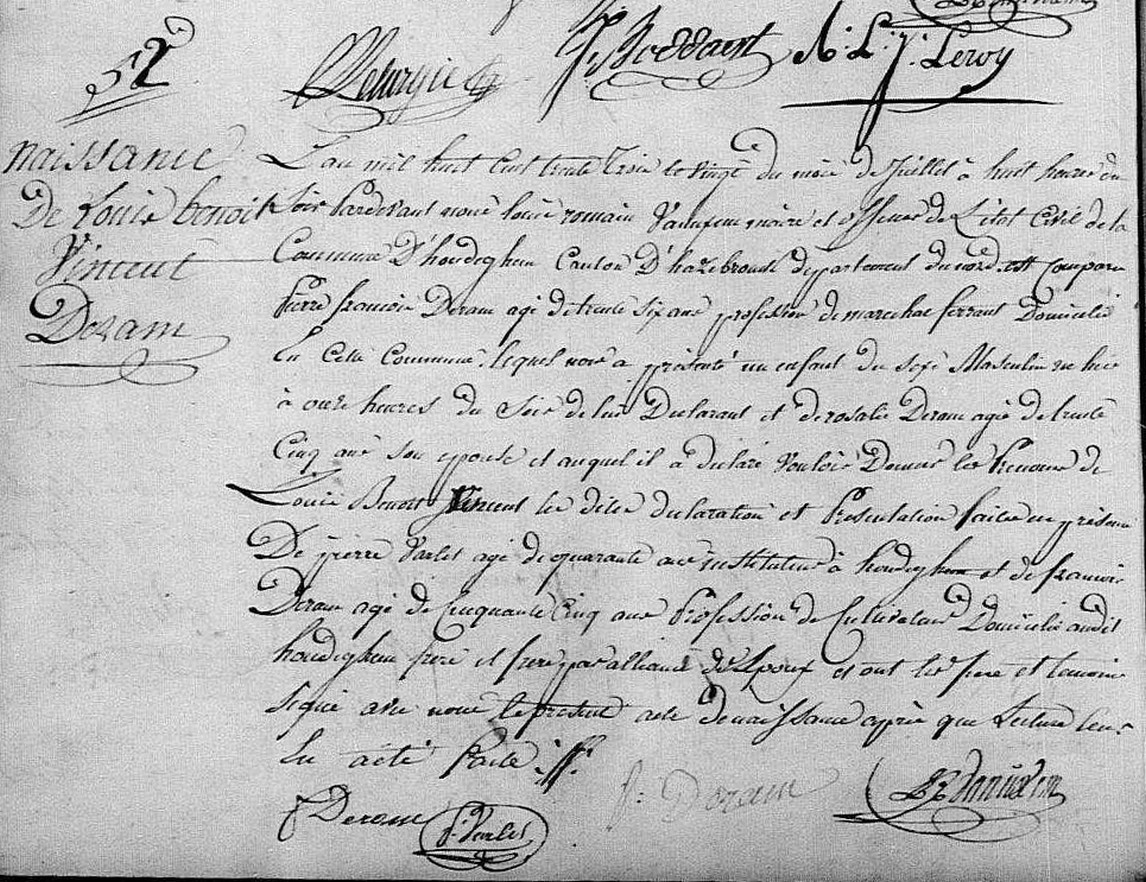 52
P. Boddaert
A. L. J. Leroy
naissance
De Louis benoit
Vincent
Deram
L'an mil huit cent trente trois le vingt du mois de Juillet à huit heures du
soir Pardevant nous louis romain Vanuxem maire et officier de L'état Civil de la
Commune D'hondeghem Canton D'hazebrouck departement du nord. est comparu
Pierre françois Deram agé de trente six ans profession de marechal ferrant Domicilié
En Cette Commune. lequel nous a présenté un enfant du sexe Masculin né hier
à onze heures du Soir de lui Declarant et de rosalie Deram agée de trente
Cinq ans son epouse et auquel il a declaré Vouloir Donner les Prenoms de
Louis Benoit Vincent les dites declaration et Presentation faites en présence
De pierre Varlet agé de quarante ans instituteur à hondeghem et de francois
Deram agé de Cinquante Cinq ans Profession de Cultivateur Domicilié audit
hondeghem frere et frere par alliance de L'poux et ont les pere et temoins
signé avec nous le présent acte de naissance après que Lecture leur
En a été faite ./.
f Deram
P. Varlet
f: Deram
LR Vanuxem